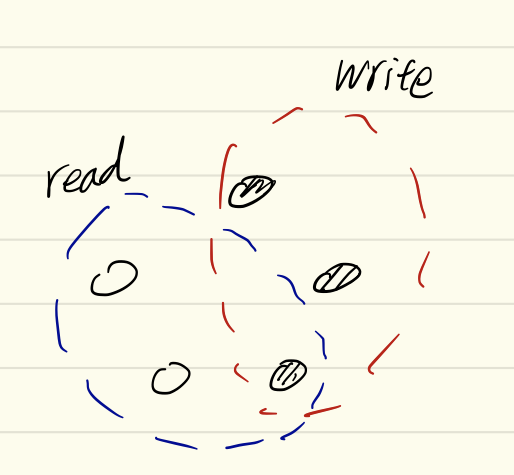 write
read